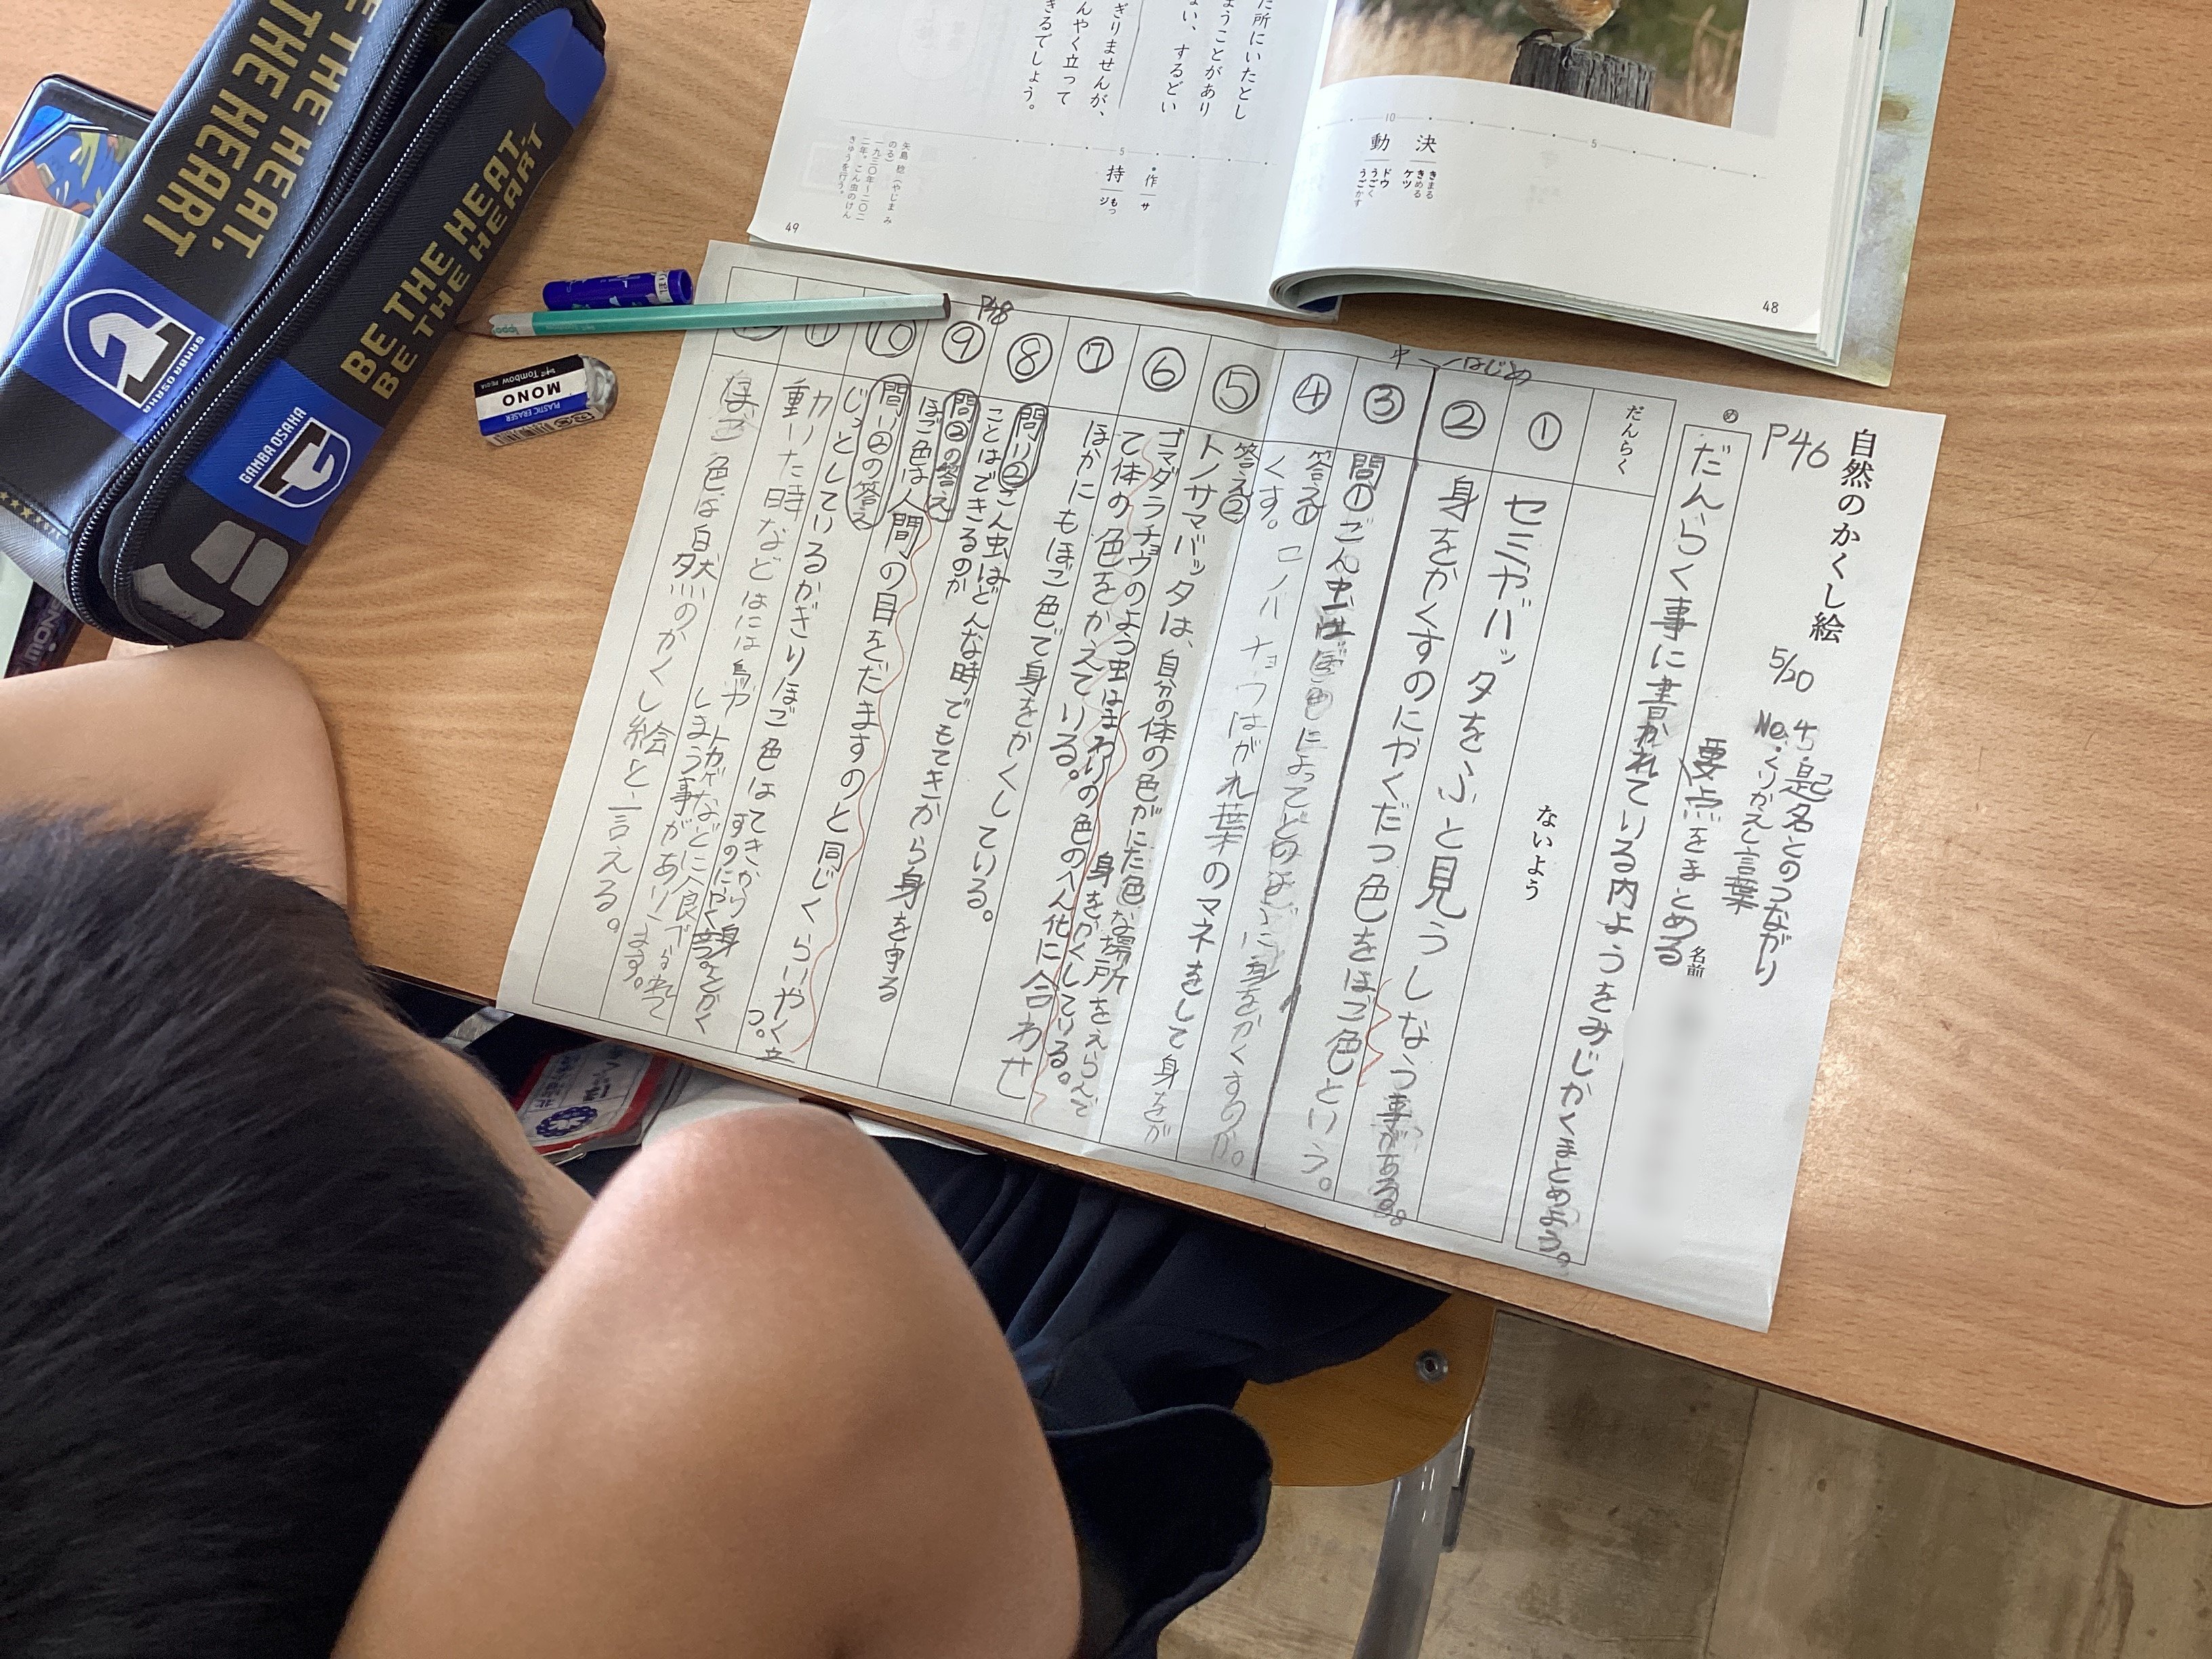 自然のかくし絵
5/20
No.4
・起名とのつながり
・くりかえし言葉
P46
要点をまとめる
名前
め
だんらく事に書かれている内ようをみじかくまとめよう。
だんらく
ないよう
はじめ
中
① セミやバッタをふと見うしなう事がある。
② 身をかくすのにやくだつ色をほご色という。
③ 問①こん虫はほご色によってどのように身をかくすのか。
④ 答え① コノハチョウはがれ葉のマネをして身をかくす。
⑤ 答え② トノサマバッタは、自分の体の色がにた色な場所をえらんで身をかくしている。
⑥ ゴマダラチョウのよう虫はまわりの色のへん化に合わせて体の色をかえている。
⑦ ほかにもほご色で身をかくしている。
P48
⑧ 問い②こん虫はどんな時でもてきから身を守ることはできるのか
⑨ 問②の答え ほご色は人間の目をだますのと同じくらいやく立つ。
⑩ 問い②の答え じっとしているかぎりほご色はてきから身をかくすのにやく立つ。
⑪ 動いた時などには鳥やトカゲなどに食べられてしまう事があります。
ほご色は自然のかくし絵と言える。
た所にいたとし
うことがあり
ない、するどい
ぎりませんが、
んやく立って
きるでしょう。
決
きまる
きめる
ケツ
動
ドウ
うごく
うごかす
作
サ
持
もつ
ジ
矢島 稔(やじま み
のる)
一九三〇年〜二〇二
二年。こん虫のけん
きゅうを行う。
5
10
5
48
49
BE THE HEAT,
BE THE HEART
THE HEAT,
THE HEART
GAMBA OSAKA
GAMBA OSAKA
Tombow
MONO
PLASTIC ERASER
ippo!